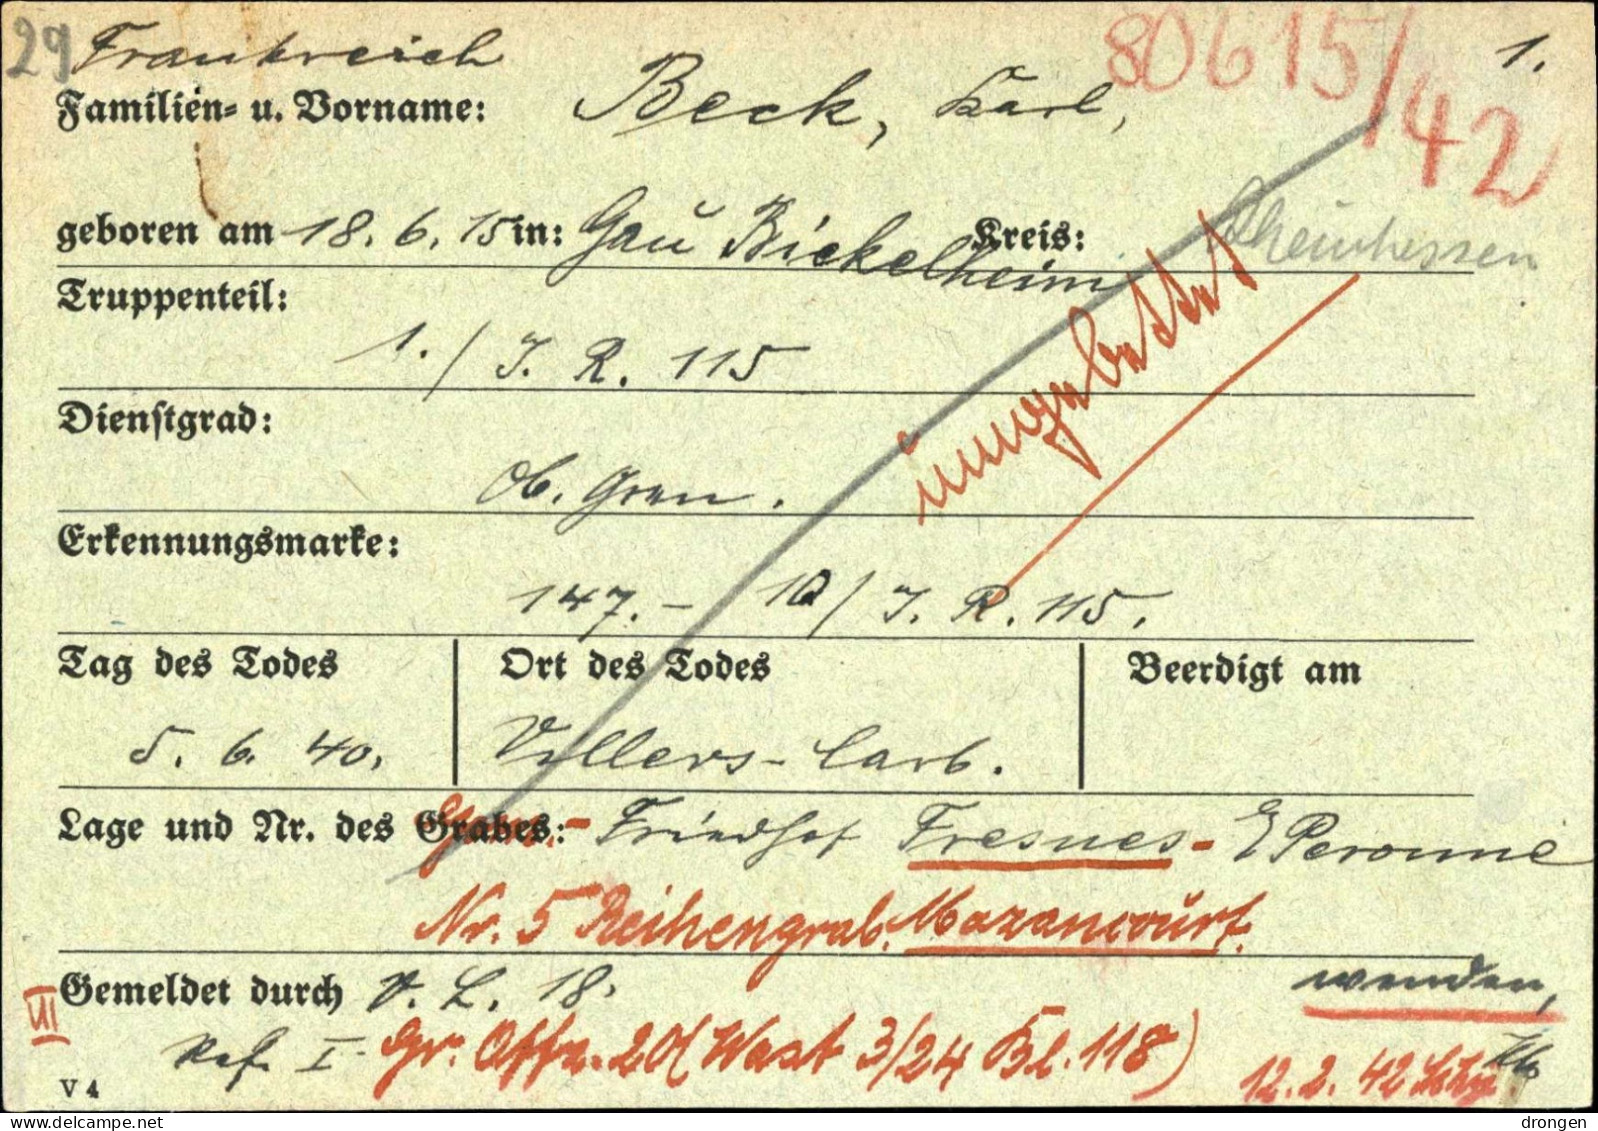 29 Frankreich 80615/42 1.
Familien- u. Vorname: Beck, Karl,
geboren am 18. 6. 15 in: Gau Bickelheim Kreis: Rheinhessen
Truppenteil:
1./J. R. 115
umgebettet
Dienstgrad:
Ob. Gren.
Erkennungsmarke:
147. - 10/J. R. 115.
Tag des Todes Ort des Todes Beerdigt am
5. 6. 40. Villers-Carb.
Lage und Nr. des Grabes: Friedhof Fresnes - Peronne
Nr. 5 Reihengrab. Mazancourt.
Gemeldet durch V. L. 18. wenden,
III Ref. I. Gr. Offz. 20 (West 3/24 Bl. 118)
12. 2. 42
V 4
drongen